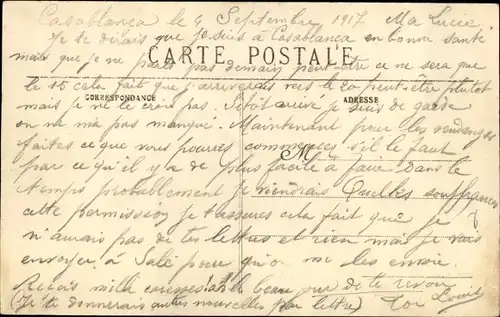 Casablanca le 4 Septembre 1917. Ma Lucie
Je te dirais que je suis à Casablanca en bonne santé
CARTE POSTALE
mais que je ne pars pas demain peut être ce ne sera que
le 15 cela fait que j'arriverais vers le 20 peut-être plutot
CORRESPONDANCE
ADRESSE
mais je ne le crois pas. Sitôt arrivé je suis de garde
on ne m'a pas manqué. Maintenant pour les vendanges
M
faites ce que vous pourrez commencez s'il le faut
par ce qu'il y a de plus facile à faire dans le
temps probablement je viendrais Quelles souffrances
cette permission je t'assure cela fait que je
n'aurais pas de tes lettres et rien mais je vais
envoyer à Salé pour qu'on me les envoie.
Reçois mille caresses à le beau jour de te revoir
(Je te donnerais autres nouvelles par lettre) Toi Louis